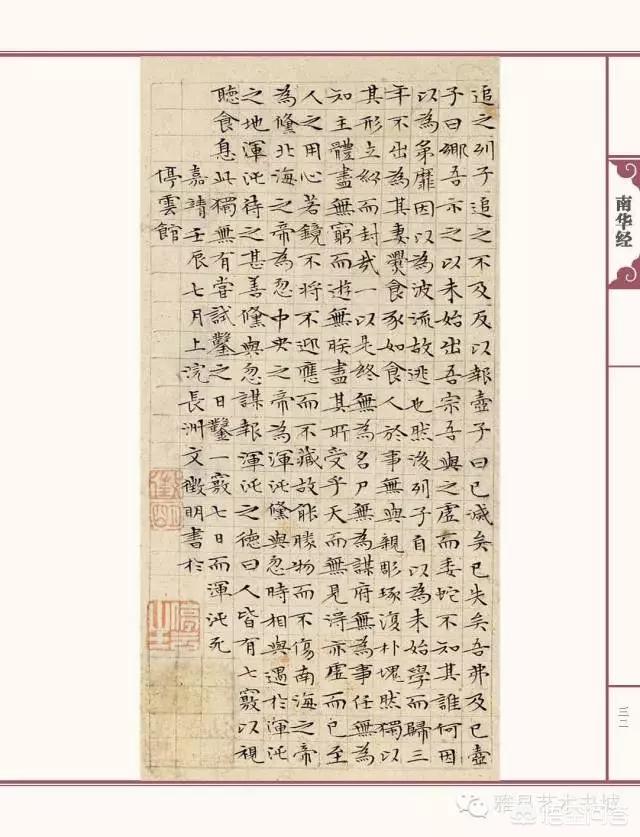 追之列子追之不及反以報壺子曰已滅矣已失矣吾弗及已壺
子曰鄉吾示之以未始出吾宗吾與之虛而委蛇不知其誰何因
以為弟靡因以為波流故逃也然後列子自以為未始學而歸三
年不出為其妻爨食豕如食人於事無與親彫琢復朴塊然獨以
其形立紛而封哉一以是終無為名尸無為謀府無為事任無為
知主體盡無窮而遊無朕盡其所受乎天而無見得亦虛而已至
人之用心若鏡不將不迎應而不藏故能勝物而不傷南海之帝
為儵北海之帝為忽中央之帝為渾沌儵與忽時相與遇於渾沌
之地渾沌待之甚善儵與忽謀報渾沌之德曰人皆有七竅以視
聽食息此獨無有嘗試鑿之日鑿一竅七日而渾沌死
嘉靖壬辰七月上浣長洲文徵明書於
停雲館
徵明
南华经
三二
雅昌艺术书城
悟空问答